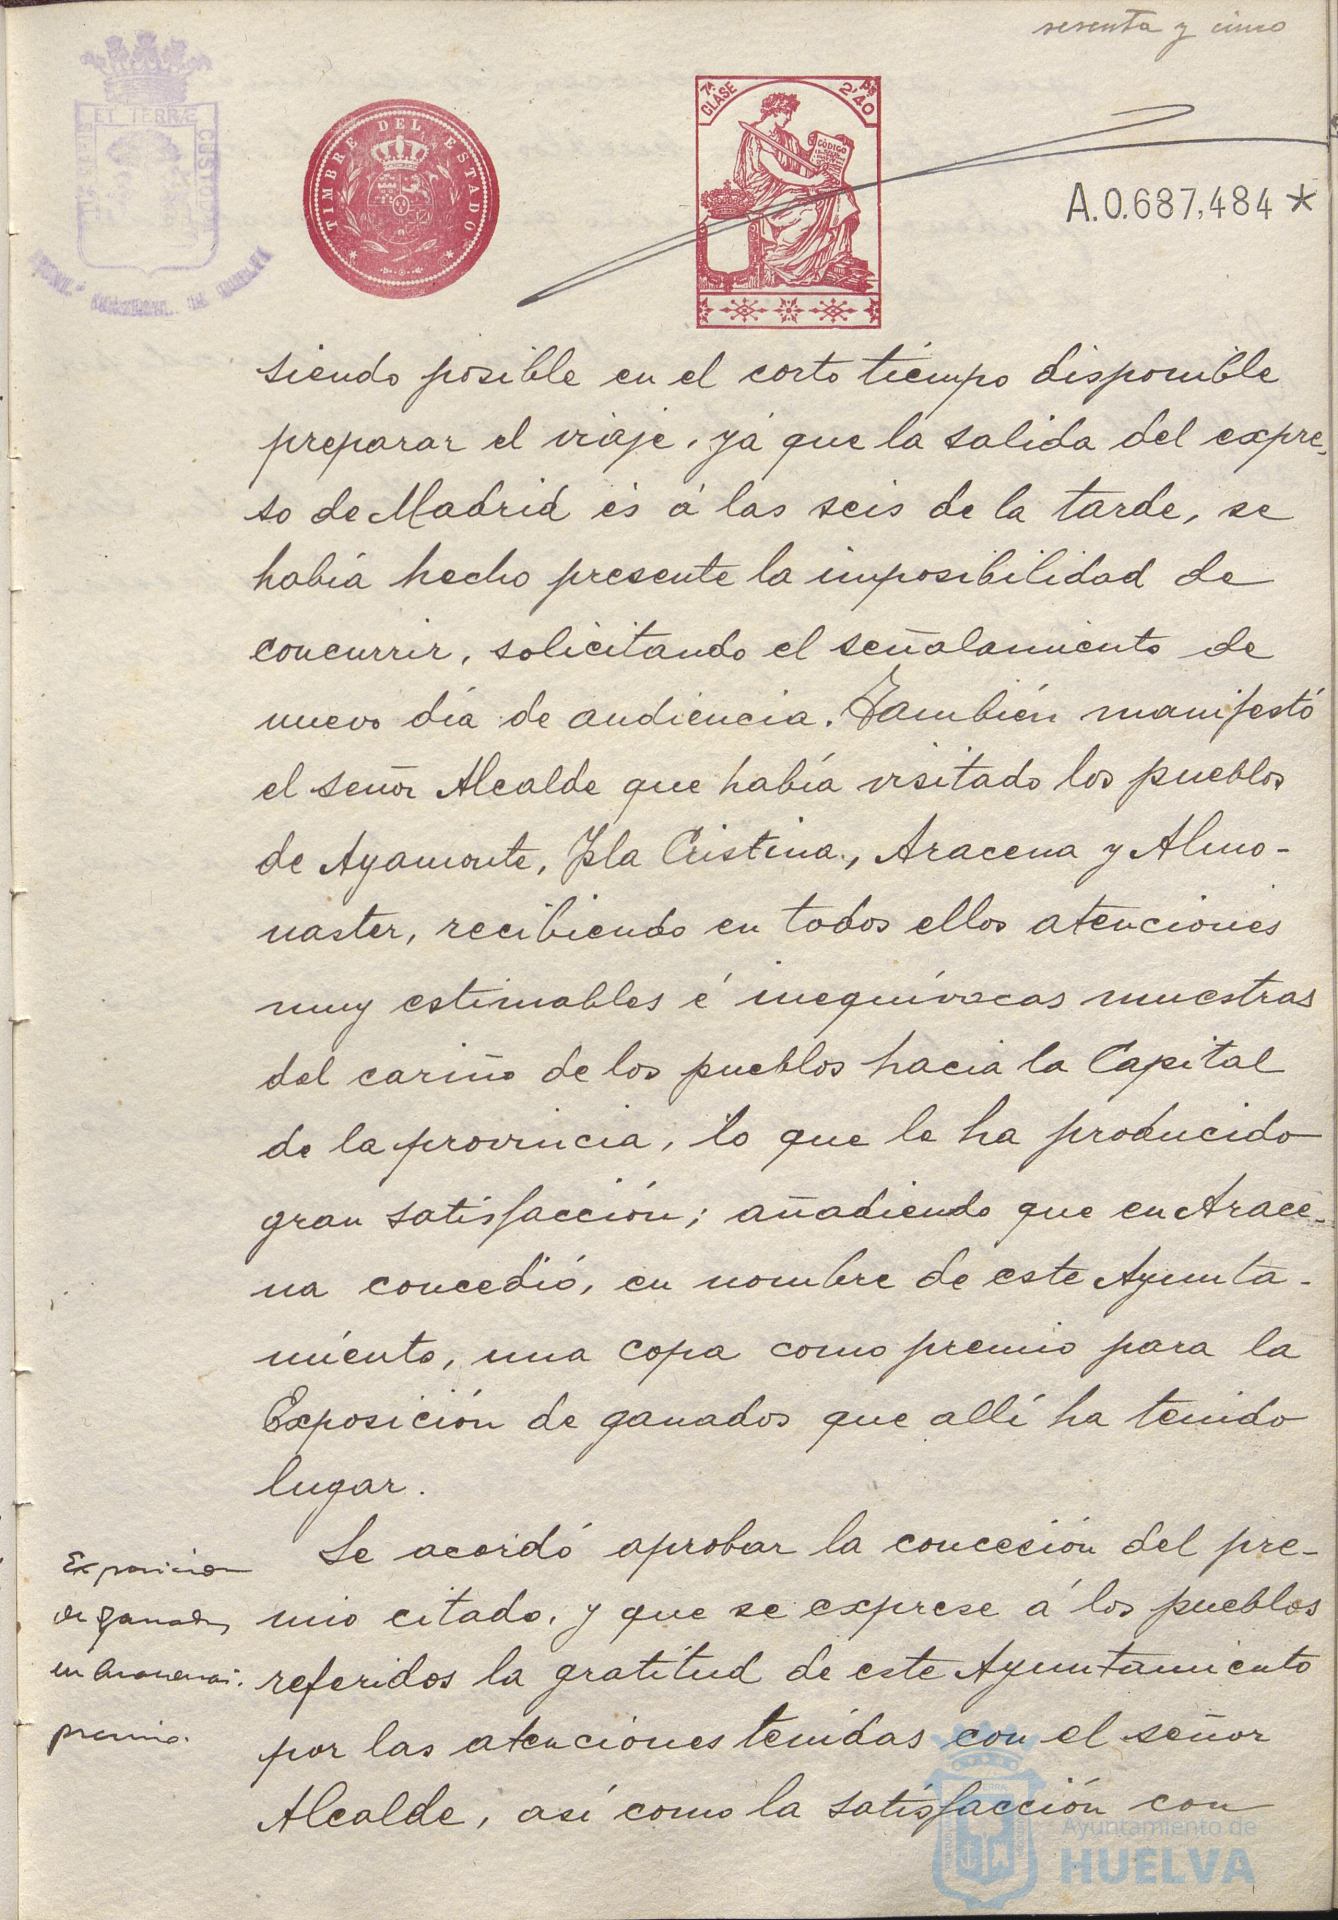 sesenta y cinco
ET TERRÆ
CUSTODIA
TIMBRE DEL ESTADO
7ª CLASE
Pts 2'40
CÓDIGO
A.0.687,484 *
siendo posible en el corto tiempo disponible
preparar el viaje, yá que la salida del expre-
so de Madrid és á las seis de la tarde, se
había hecho presente la imposibilidad de
concurrir, solicitando el señalamiento de
nuevo día de audiencia. También manifestó
el señor Alcalde que había visitado los pueblos
de Ayamonte, Isla Cristina, Aracena y Almo-
naster, recibiendo en todos ellos atenciones
muy estimables é inequívocas muestras
del cariño de los pueblos hacia la Capital
de la provincia, lo que le ha producido
gran satisfacción; añadiendo que en Arace-
na concedió, en nombre de este Ayunta-
miento, una copa como premio para la
Exposición de ganados que allí ha tenido
lugar.
Exposicion
de ganados
en Aracena:
premio.
Se acordó aprobar la concesión del pre-
mio citado, y que se exprese á los pueblos
referidos la gratitud de este Ayuntamiento
por las atenciones tenidas con el señor
Alcalde, así como la satisfacción con
Ayuntamiento de
HUELVA